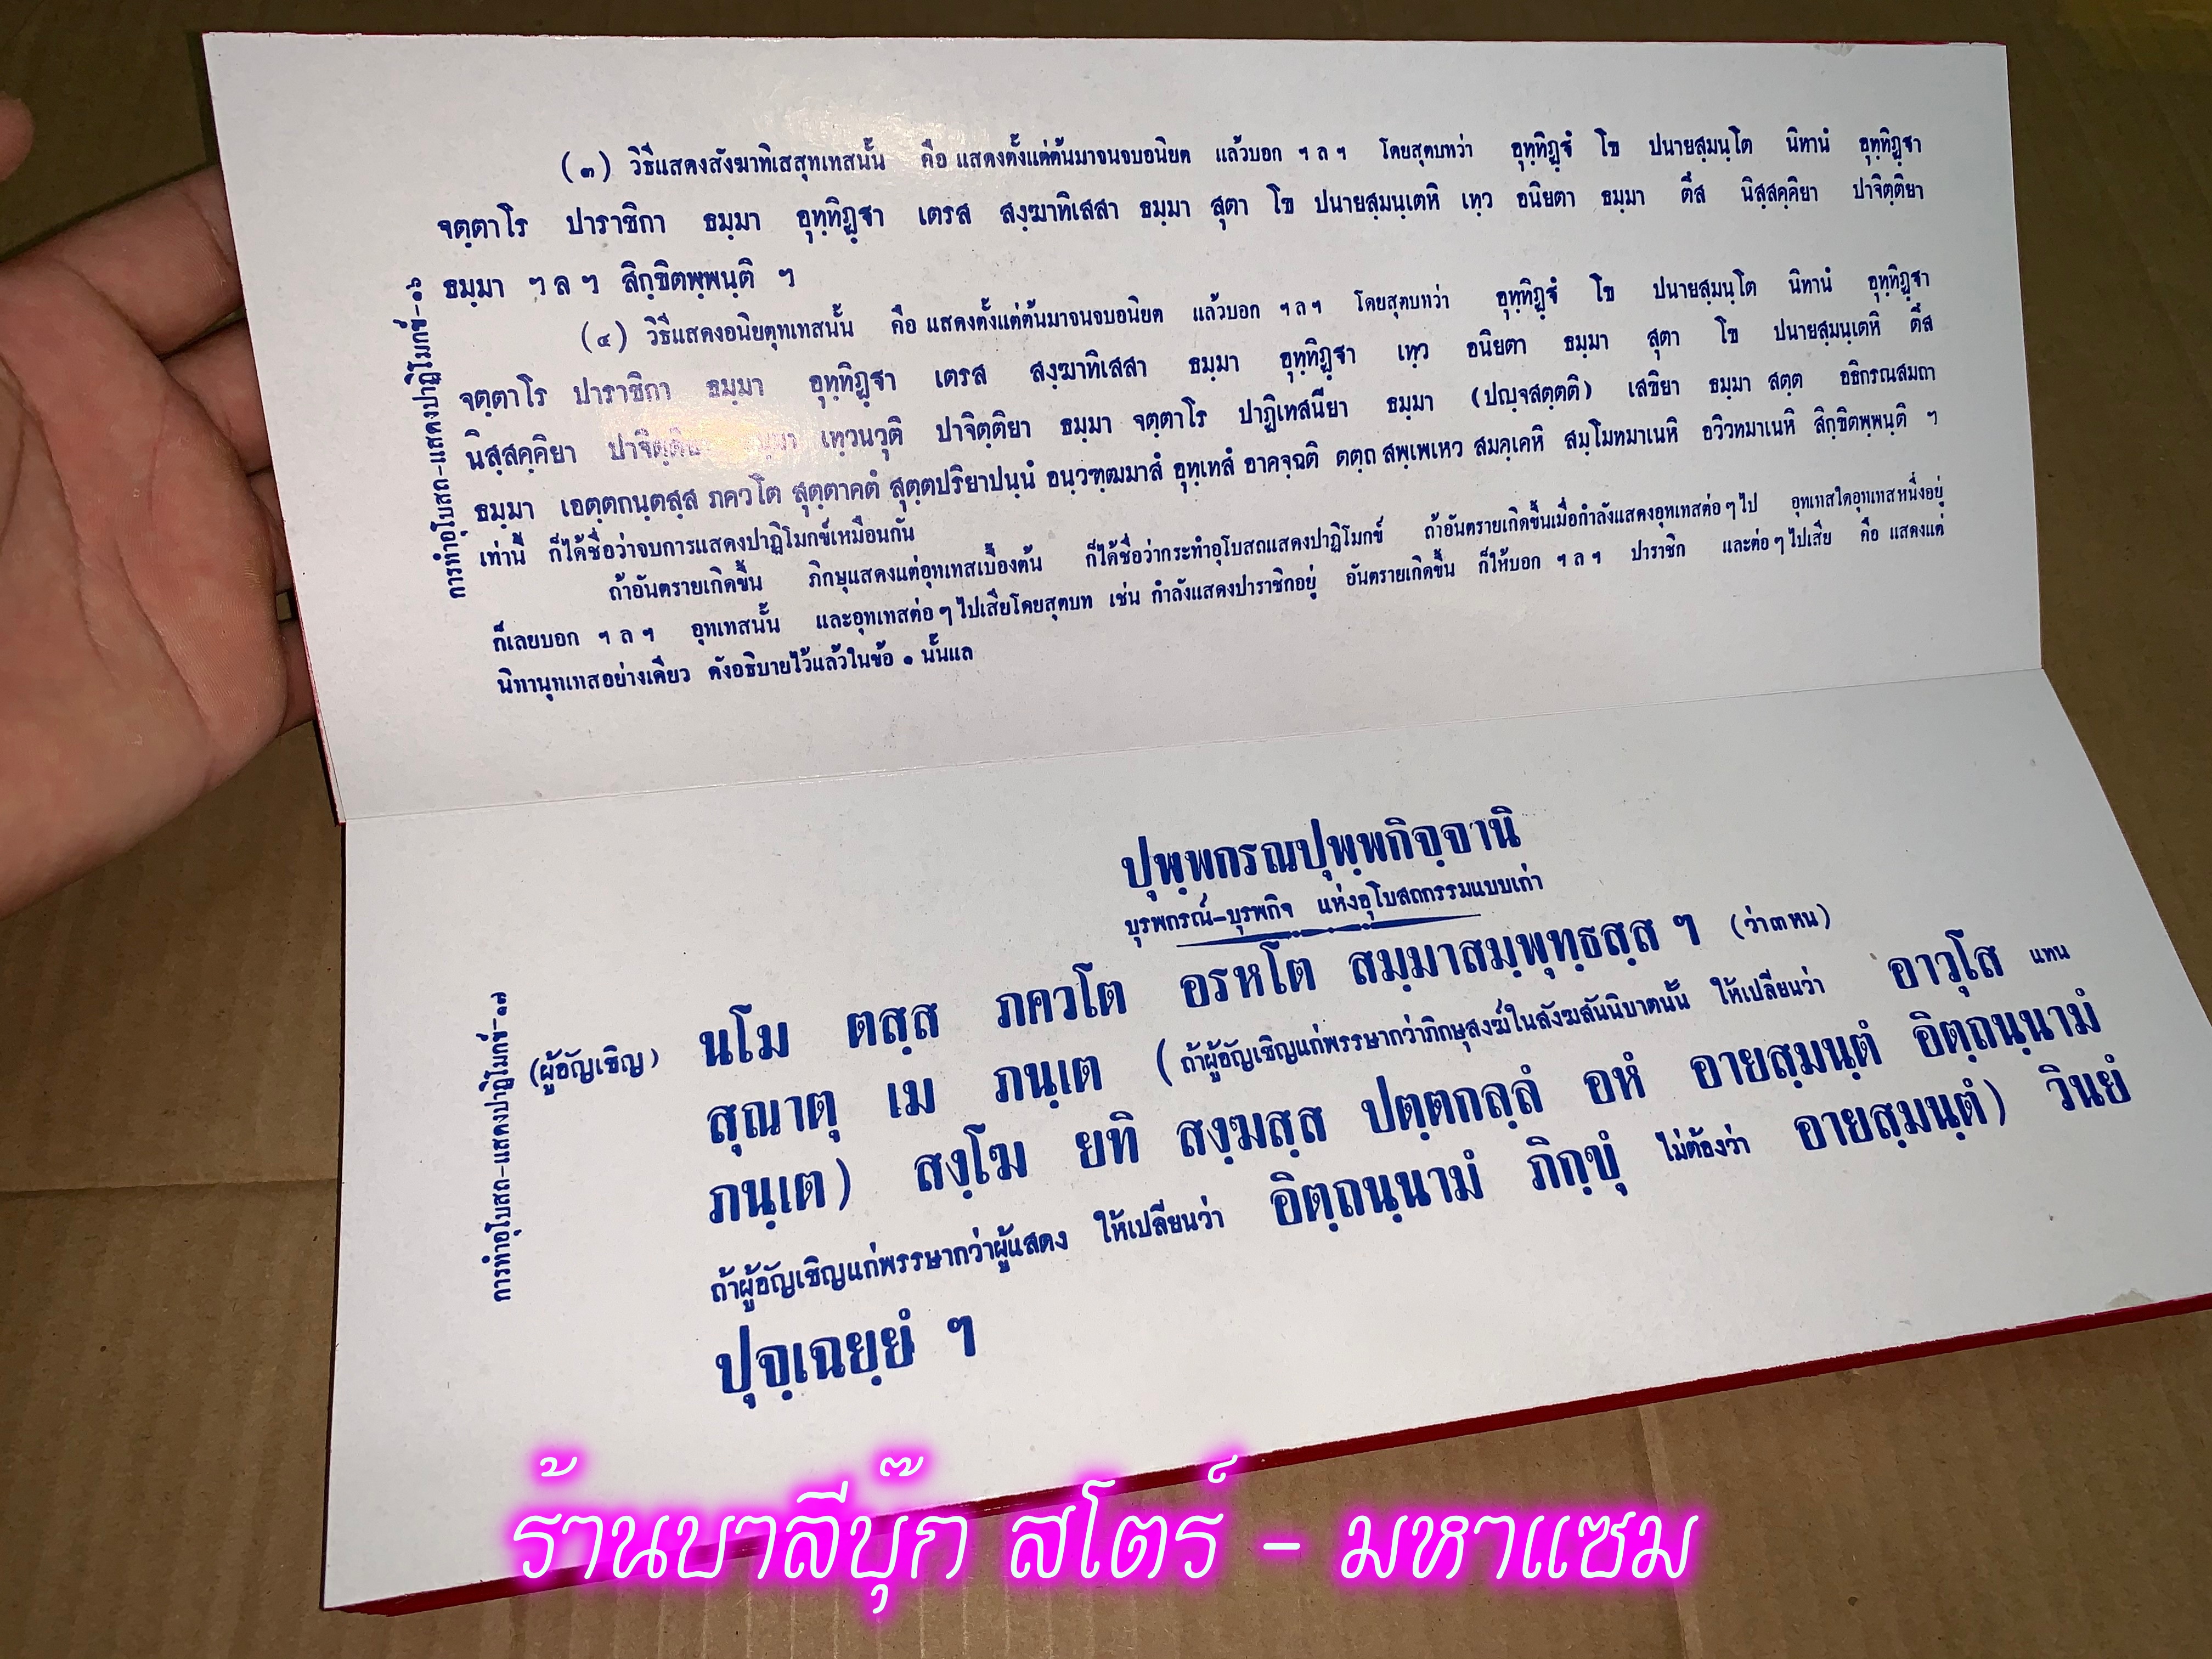 การทำอุโบสถ-แสดงปาฏิโมกข์-๑๖
(๓) วิธีแสดงสังฆาทิเสสุทเทสนั้น คือ แสดงตั้งแต่ต้นมาจนจบอนิยต แล้วบอก ฯ ล ฯ โดยสุตบทว่า อุทฺทิฏฺฐํ โข ปนายสฺมนฺโต นิทานํ อุทฺทิฏฺฐา
จตฺตาโร ปาราชิกา ธมฺมา อุทฺทิฏฺฐา เตรส สงฺฆาทิเสสา ธมฺมา สุตา โข ปนายสฺมนฺเตหิ เทฺว อนิยตา ธมฺมา ตึส นิสฺสคฺคิยา ปาจิตฺติยา
ธมฺมา ฯ ล ฯ สิกฺขิตพฺพนฺติ ฯ
(๔) วิธีแสดงอนิยตุทเทสนั้น คือ แสดงตั้งแต่ต้นมาจนจบอนิยต แล้วบอก ฯ ล ฯ โดยสุตบทว่า อุทฺทิฏฺฐํ โข ปนายสฺมนฺโต นิทานํ อุทฺทิฏฺฐา
จตฺตาโร ปาราชิกา ธมฺมา อุทฺทิฏฺฐา เตรส สงฺฆาทิเสสา ธมฺมา อุทฺทิฏฺฐา เทฺว อนิยตา ธมฺมา สุตา โข ปนายสฺมนฺเตหิ ตึส
นิสฺสคฺคิยา ปาจิตฺติยา ธมฺมา เทฺวนวุติ ปาจิตฺติยา ธมฺมา จตฺตาโร ปาฏิเทสนียา ธมฺมา (ปญฺจสตฺตติ) เสขิยา ธมฺมา สตฺต อธิกรณสมถา
ธมฺมา เอตฺตกนฺตสฺส ภควโต สุตฺตาคตํ สุตฺตปริยาปนฺนํ อนฺวฑฺฒมาสํ อุทฺเทสํ อาคจฺฉติ ตตฺถ สพฺเพเหว สมคฺเคหิ สมฺโมทมาเนหิ อวิวทมาเนหิ สิกฺขิตพฺพนฺติ ฯ
เท่านี้ ก็ได้ชื่อว่าจบการแสดงปาฏิโมกข์เหมือนกัน
ถ้าอันตรายเกิดขึ้น ภิกษุแสดงแต่อุทเทสเบื้องต้น ก็ได้ชื่อว่ากระทำอุโบสถแสดงปาฏิโมกข์ ถ้าอันตรายเกิดขึ้นเมื่อกำลังแสดงอุทเทสต่อๆไป อุทเทสใดอุทเทสหนึ่งอยู่
ก็เลยบอก ฯ ล ฯ อุทเทสนั้น และอุทเทสต่อๆไปเสียโดยสุตบท เช่น กำลังแสดงปาราชิกอยู่ อันตรายเกิดขึ้น ก็ให้บอก ฯ ล ฯ ปาราชิก และต่อๆไปเสีย คือ แสดงแต่
นิทานุทเทสอย่างเดียว ดังอธิบายไว้แล้วในข้อ ๑ นั้นแล
การทำอุโบสถ-แสดงปาฏิโมกข์-๑๗
ปุพฺพกรณปุพฺพกิจฺจานิ
บุรพกรณ์-บุรพกิจ แห่งอุโบสถกรรมแบบเก่า
(ผู้อัญเชิญ) นโม ตสฺส ภควโต อรหโต สมฺมาสมฺพุทฺธสฺส ฯ (ว่า๓หน)
สุณาตุ เม ภนฺเต (ถ้าผู้อัญเชิญแก่พรรษากว่าภิกษุสงฆ์ในสังฆสันนิบาตนั้น ให้เปลี่ยนว่า อาวุโส แทน
ภนฺเต) สงฺโฆ ยทิ สงฺฆสฺส ปตฺตกลฺลํ อหํ อายสฺมนฺตํ อิตฺถนฺนามํ
ถ้าผู้อัญเชิญแก่พรรษากว่าผู้แสดง ให้เปลี่ยนว่า อิตฺถนฺนามํ ภิกฺขุํ ไม่ต้องว่า อายสฺมนฺตํ) วินยํ
ปุจฺเฉยฺยํ ฯ
ร้านบาลีบุ๊ก สโตร์ - มหาแซม